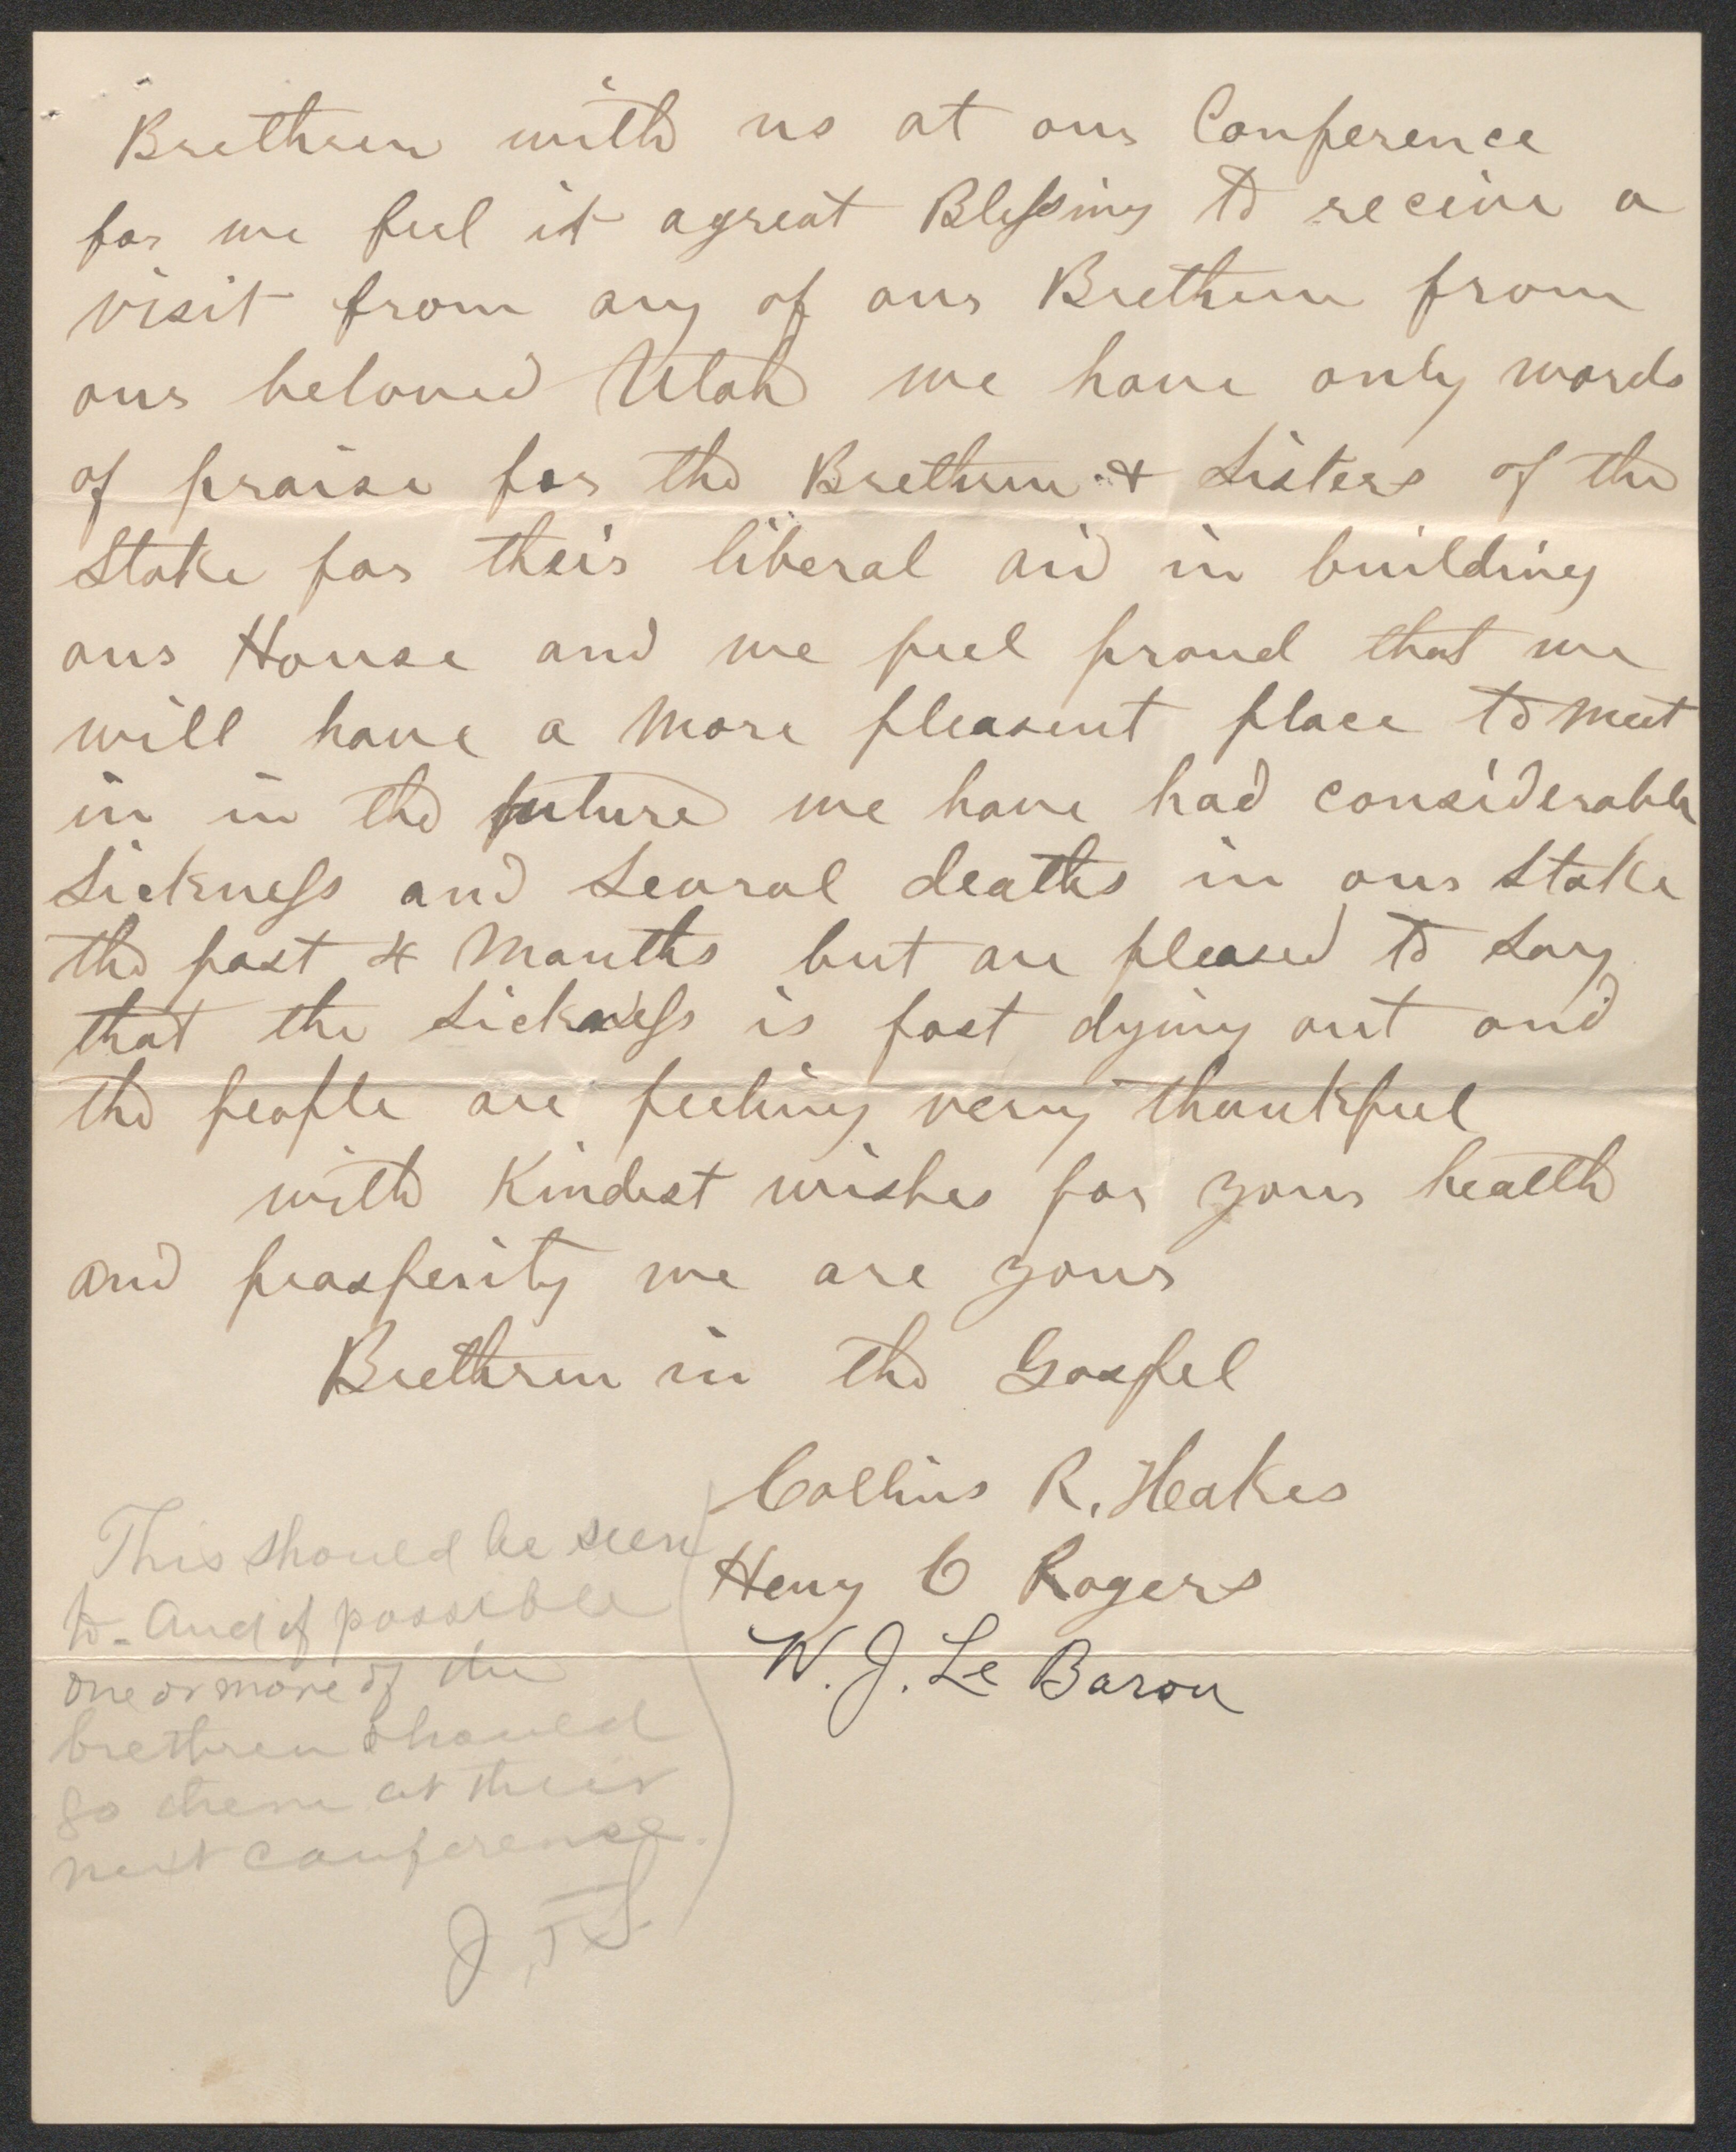 Brethren with us at our Conference
for we feel it agreat Blessing to receive a
visit from any of our Brethren from
our beloved Utah we have only words
of praise for the Brethren & Sisters of the
Stake for their liberal aid in building
our House and we feel proud that we
will have a More pleasent place to meet
in in the future we have had considerable
Sickness and Several deaths in our Stake
the past 4 Months but are pleased to Say
that the Sickness is fast dying out and
the people are feeling very thankful
with Kindest wishes for your health
and prosperity we are your
Brethren in the Gospel
Collins R. Heakes
Henry C Rogers
W. J. Le Baron
This should be seen
to - And if possible
one or more of the
brethren should
go there at their
next conference.
J. F. S.